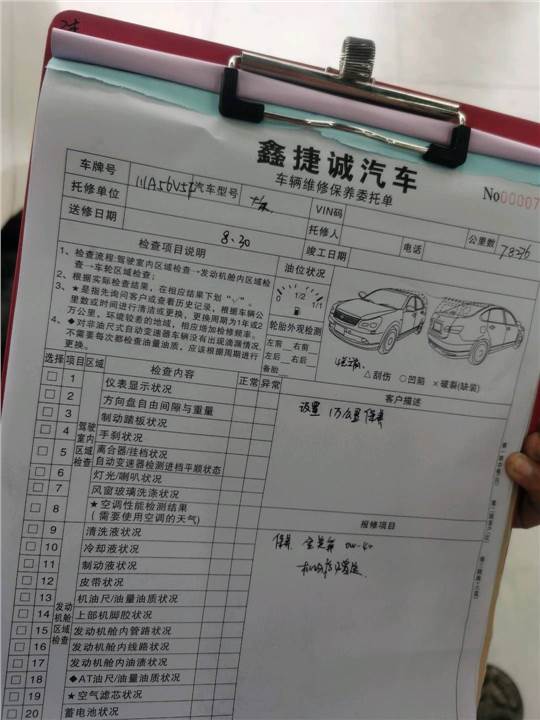 鑫捷诚汽车
车辆维修保养委托单
No00007
车牌号 川A56V5F 汽车型号 VIN码 公里数 78276
托修单位 托修人 电话
送修日期 8.30 竣工日期
检查项目说明 油位状况
1、检查流程:驾驶室内区域检查→发动机舱内区域检
查→车轮区域检查;
2、根据实际检查结果,在相应结果下划“√”。
3、★是指先询问客户或查看历史记录,根据车辆公
里数或时间进行清洁或更换,更换周期为1年或2
万公里,环境较差的地域,相应增加检修频率。
4、◆对非油尺式自动变速器车辆没有出现滴漏情况,
不需要每次都检查油量油质,应该根据周期进行
更换。
0 1/2 1/1
轮胎外观检测
左前 右前
左后 右后
备胎
△刮伤 ○凹陷 ×破裂(缺装)
选择 项目 区域 检查内容 正常 异常 客户描述
驾驶室内区域检查
1 仪表显示状况
2 方向盘自由间隙与重量
3 制动踏板状况
4 手刹状况
5 离合器/挂档状况
自动变速器检测进档平顺状态
6 灯光/喇叭状况
7 风窗玻璃洗涤状况
8 ★空调性能检测结果
(需要使用空调的天气)
设置 1万公里 保养
报修项目
发动机舱区域检查
9 清洗液状况
10 冷却液状况
11 制动液状况
12 皮带状况
13 机油尺/油量油质状况
14 上部机脚胶状况
15 发动机舱内管路状况
16 发动机舱内线路状况
17 发动机舱内油渍状况
18 ◆AT油尺/油量油质状况
19 ★空气滤芯状况
20 蓄电池状况
保养